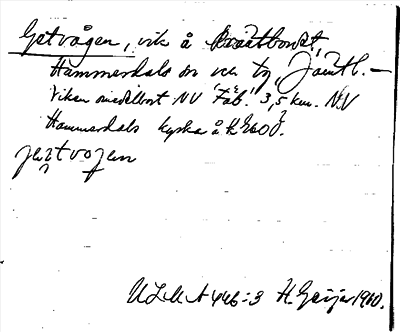 Getvågen, vik å
Hammerdals sn och tg, Jämtl. —
Viken omedelbart NV "Fäb." 3,5 km. NV
Hammerdals kyrka å
jetvogen
ULMA 446:3 H. Geijer 1910.